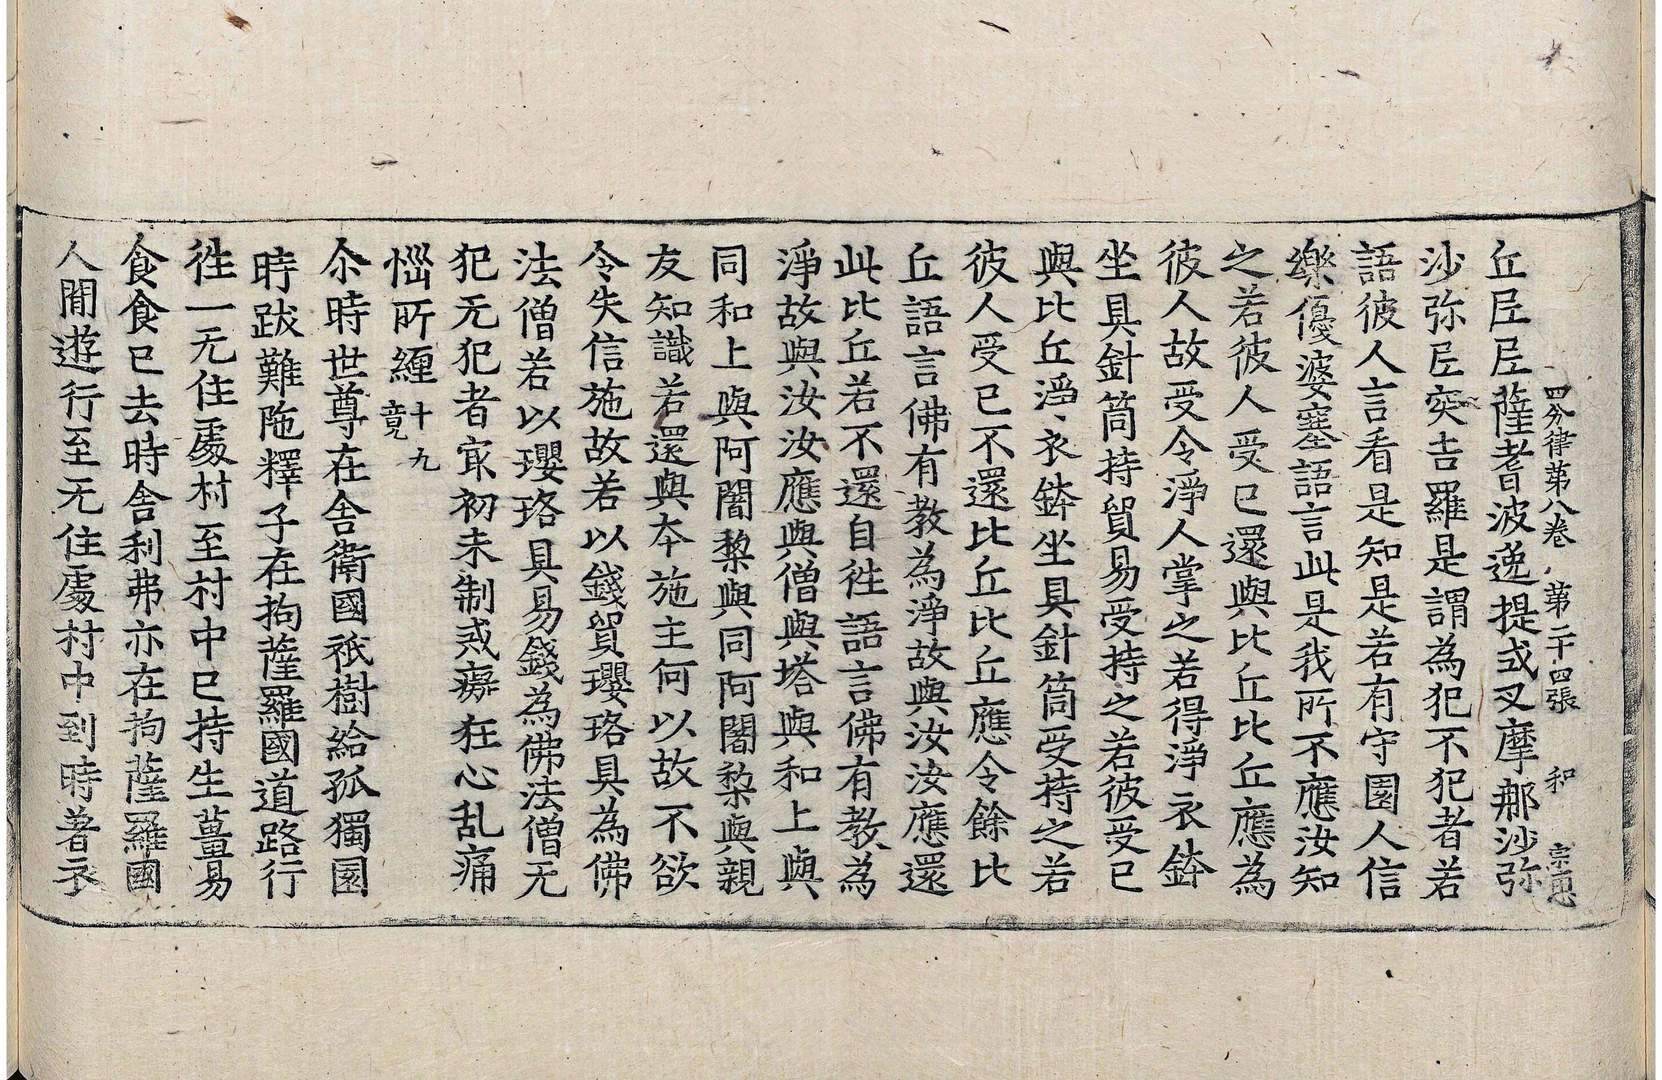 四分律第八卷 第二十四張 和
丘尼尼薩耆波逸提或叉摩那沙弥
沙弥尼突吉羅是謂為犯不犯者若
語彼人言看是知是若有守園人信
樂優婆塞語言此是我所不應汝知
之若彼人受已還與比丘比丘應為
彼人故受令淨人掌之若得淨衣鉢
坐具針筒持貿易受持之若彼受已
與比丘淨衣鉢坐具針筒受持之若
彼人受已不還比丘比丘應令餘比
丘語言佛有教為淨故與汝汝應還
此比丘若不還自往語言佛有教為
淨故與汝汝應與僧與塔與和上與
同和上與阿闍黎與同阿闍黎與親
友知識若還與本施主何以故不欲
令失信施故若以錢貿瓔珞具為佛
法僧若以瓔珞具易錢為佛法僧无
犯无犯者㝡初未制戒癡狂心乱痛
惱所纏十九竟
尒時世尊在舍衛國祇樹給孤獨園
時跋難陁釋子在拘薩羅國道路行
往一无住處村至村中已持生薑易
食食已去時舍利弗亦在拘薩羅國
人閒遊行至无住處村中到時著衣